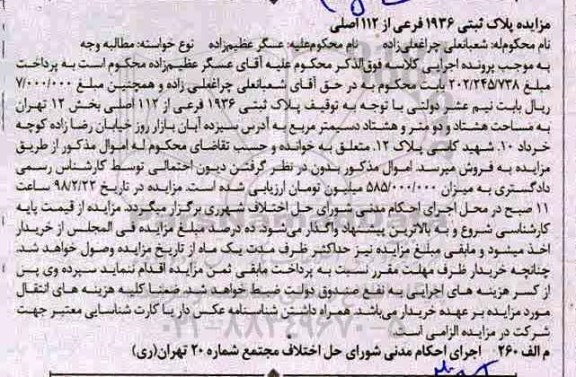 مزایده پلاک ثبتی ۱۹۳۶ فرعی از ۱۱۲ اصلی
نام محکوم‌له: شعبانعلی چراغعلی‌زاده نام محکوم‌علیه: عسگر عظیم‌زاده نوع خواسته: مطالبه وجه
به موجب پرونده اجرایی کلاسه فوق‌الذکر محکوم علیه آقای عسگر عظیم‌زاده محکوم است به پرداخت
مبلغ ۲۰۲/۲۴۵/۷۳۸ بابت محکوم به در حق آقای شعبانعلی چراغعلی زاده و همچنین مبلغ ۷/۰۰۰/۰۰۰
ریال بابت نیم عشر دولتی با توجه به توقیف پلاک ثبتی ۱۹۳۶ فرعی از ۱۱۲ اصلی بخش ۱۲ تهران
به مساحت هشتاد و دو متر و هشتاد دسیمتر مربع به آدرس سیزده آبان بازار روز خیابان رضا زاده کوچه
خرداد ۱۰، شهید کاسی پلاک ۱۲، متعلق به خوانده و حسب تقاضای محکوم له اموال مذکور از طریق
مزایده به فروش میرسد. اموال مذکور بدون در نظر گرفتن دیون احتمالی توسط کارشناس رسمی
دادگستری به میزان ۵۸۵/۰۰۰/۰۰۰ میلیون تومان ارزیابی شده است. مزایده در تاریخ ۹۸/۲/۲۲ ساعت
۱۱ صبح در محل اجرای احکام مدنی شورای حل اختلاف شهرری برگزار میگردد. مزایده از قیمت پایه
کارشناسی شروع و به بالاترین پیشنهاد واگذار می‌شود. ده درصد مبلغ مزایده فی المجلس از خریدار
اخذ میشود و مابقی مبلغ مزایده نیز حداکثر ظرف مدت یک ماه از تاریخ مزایده وصول خواهد شد.
چنانچه خریدار ظرف مهلت مقرر نسبت به پرداخت مابقی ثمن مزایده اقدام ننماید سپرده وی پس
از کسر هزینه های اجرایی به نفع صندوق دولت ضبط خواهد شد. ضمنا کلیه هزینه های انتقال
مورد مزایده بر عهده خریدار می‌باشد. همراه داشتن شناسنامه عکس دار یا کارت شناسایی معتبر جهت
شرکت در مزایده الزامی است.
م الف ۲۶۰ اجرای احکام مدنی شورای حل اختلاف مجتمع شماره ۲۰ تهران(ری)